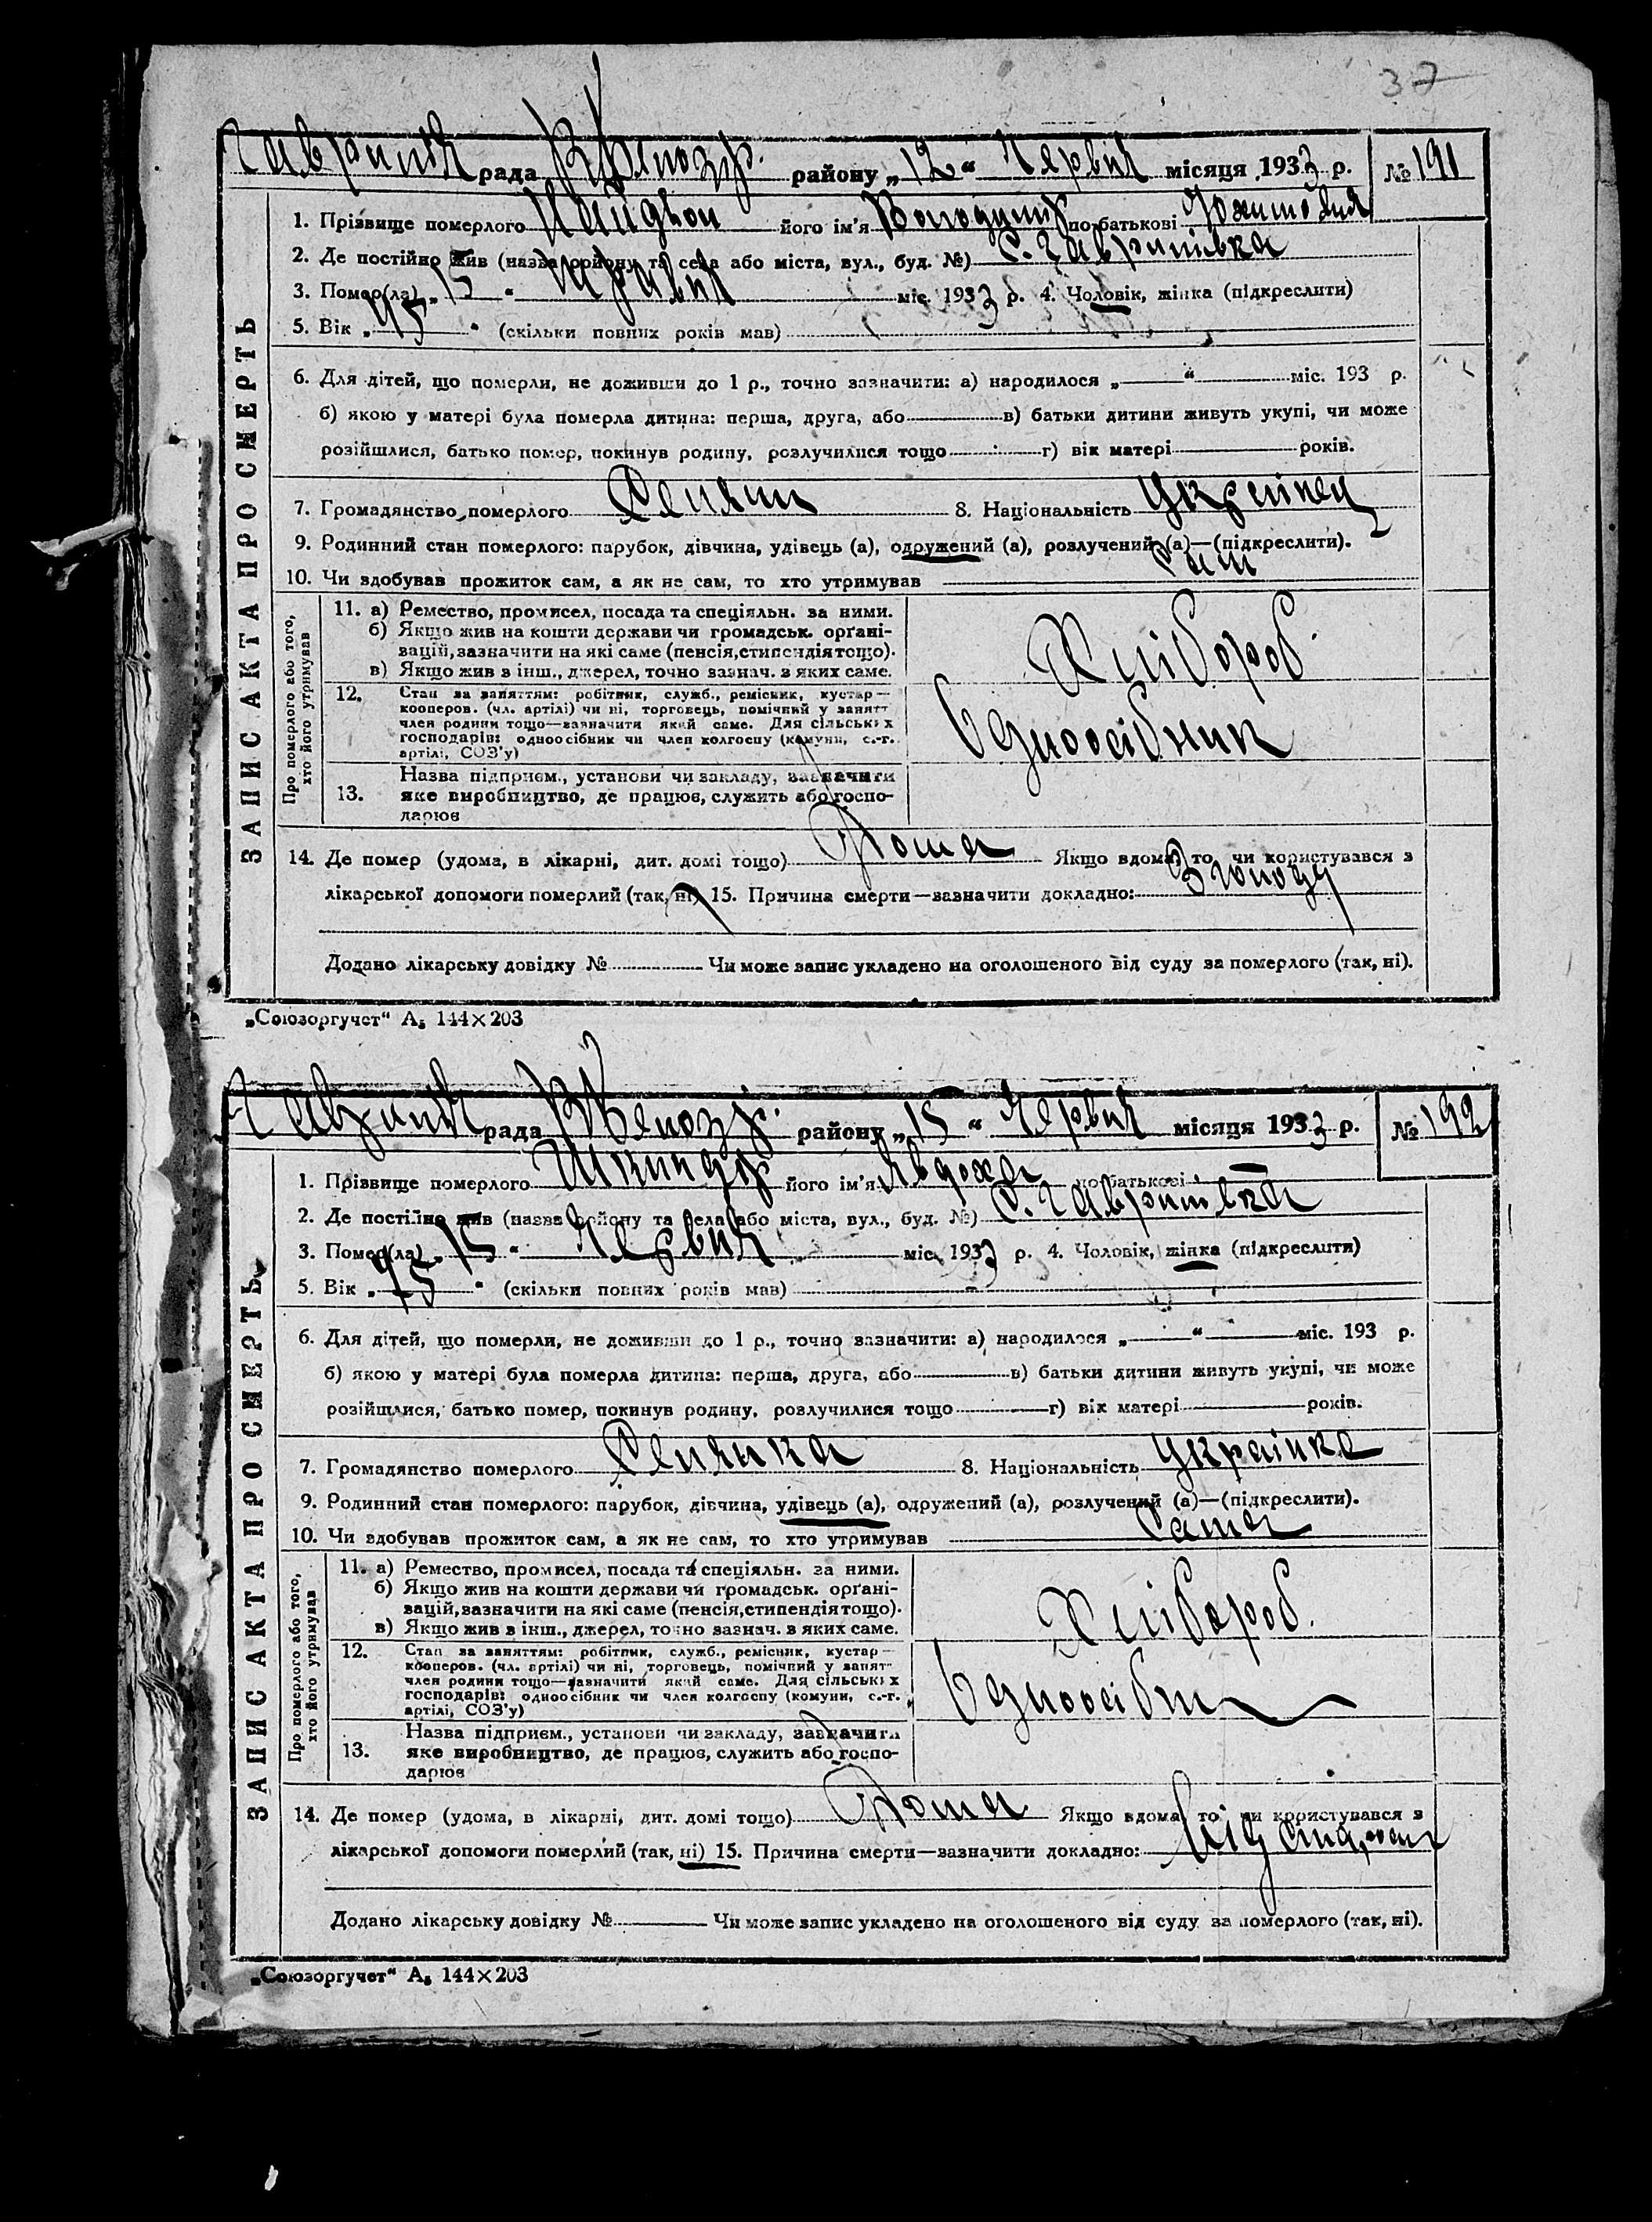 37
рада району „12“ Червня місяця 1933 р. № 191
1. Прізвище померлого його ім'я Володимир по батькові
2. Де постійно жив (назва району та села або міста, вул., буд. №) С. Гавришівка
3. Помер(ла) „15“ Червня міс. 1933 р. 4. Чоловік, жінка (підкреслити)
5. Вік „45“ (скільки повних років мав)
6. Для дітей, що померли, не доживши до 1 р., точно зазначити: а) народилося „ “ міс. 193 р.
б) якою у матері була померла дитина: перша, друга, або в) батьки дитини живуть укупі, чи може
розійшлися, батько помер, покинув родину, розлучилися тощо г) вік матері років.
7. Громадянство померлого Селянин 8. Національність Українец
9. Родинний стан померлого: парубок, дівчина, удівець (а), одружений (а), розлучений (а)—(підкреслити).
10. Чи здобував прожиток сам, а як не сам, то хто утримував Сам
ЗАПИС АКТА ПРО СМЕРТЬ
Про померлого або того, хто його утримував
11. а) Ремество, промисел, посада та спеціяльн. за ними.
б) Якщо жив на кошти держави чи громадськ. орґані-
зацій, зазначити на які саме (пенсія, стипендія тощо).
в) Якщо жив з інш., джерел, точно зазнач. з яких саме.
Хлібороб.
12. Стан за заняттям: робітник, служб., ремісник, кустар—
кооперов. (чл. артілі) чи ні, торговець, помічний у занят
член родини тощо—зазначити який саме. Для сільських
господарів: одноосібник чи член колгоспу (комуни, с.-г.
артілі, СОЗ'у)
Одноосібник
Назва підприєм., установи чи закладу, зазначити
13. яке виробництво, де працює, служить або госпо-
дарює
14. Де помер (удома, в лікарні, дит. домі тощо) Дома Якщо вдома, то чи користувався з
лікарської допомоги померлий (так, ні) 15. Причина смерти—зазначити докладно: З голоду
Додано лікарську довідку № Чи може запис укладено на оголошеного від суду за померлого (так, ні).
„Союзоргучет“ А₅ 144×203
рада району „15“ Червня місяця 1933 р. № 192
1. Прізвище померлого його ім'я Явдоха по батькові —
2. Де постійно жив (назва району та села або міста, вул., буд. №) С. Гавришівка
3. Помер(ла) „15“ Червня міс. 1933 р. 4. Чоловік, жінка (підкреслити)
5. Вік „75“ (скільки повних років мав)
6. Для дітей, що померли, не доживши до 1 р., точно зазначити: а) народилося „ “ міс. 193 р.
б) якою у матері була померла дитина: перша, друга, або в) батьки дитини живуть укупі, чи може
розійшлися, батько помер, покинув родину, розлучилися тощо г) вік матері років.
7. Громадянство померлого Селянка 8. Національність Українка
9. Родинний стан померлого: парубок, дівчина, удівець (а), одружений (а), розлучений (а)—(підкреслити).
10. Чи здобував прожиток сам, а як не сам, то хто утримував Сама
ЗАПИС АКТА ПРО СМЕРТЬ
Про померлого або того, хто його утримував
11. а) Ремество, промисел, посада та спеціяльн. за ними.
б) Якщо жив на кошти держави чи громадськ. орґані-
зацій, зазначити на які саме (пенсія, стипендія тощо).
в) Якщо жив з інш., джерел, точно зазнач. з яких саме.
Хлібороб.
12. Стан за заняттям: робітник, служб., ремісник, кустар—
кооперов. (чл. артілі) чи ні, торговець, помічний у занят
член родини тощо—зазначити який саме. Для сільських
господарів: одноосібник чи член колгоспу (комуни, с.-г.
артілі, СОЗ'у)
Назва підприєм., установи чи закладу, зазначити
13. яке виробництво, де працює, служить або госпо-
дарює
14. Де помер (удома, в лікарні, дит. домі тощо) Дома Якщо вдома, то чи користувався з
лікарської допомоги померлий (так, ні) 15. Причина смерти—зазначити докладно: Від
Додано лікарську довідку № Чи може запис укладено на оголошеного від суду за померлого (так, ні).
„Союзоргучет“ А₅ 144×203